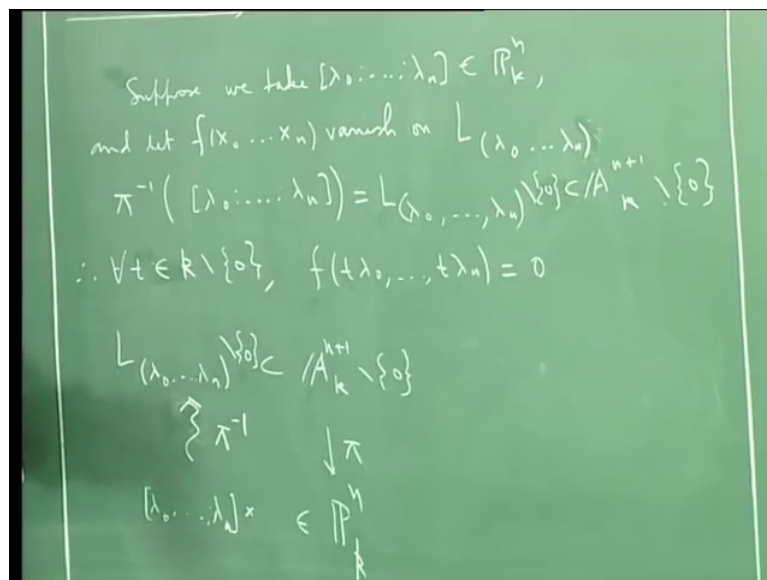 Suppose we take [λ₀:...:λₙ] ∈ ℙⁿₖ,
and let f(x₀...xₙ) vanish on L₍λ₀...λₙ₎
π⁻¹([λ₀:...:λₙ]) = L₍λ₀,...,λₙ₎\{0} ⊂ 𝔸ⁿ⁺¹ₖ \ {0}
∴ ∀t ∈ k\{0}, f(tλ₀,...,tλₙ) = 0
L₍λ₀...λₙ₎\{0} ⊂ 𝔸ⁿ⁺¹ₖ \ {0}
π⁻¹ ↓π
[λ₀:...:λₙ] × ∈ ℙⁿₖ